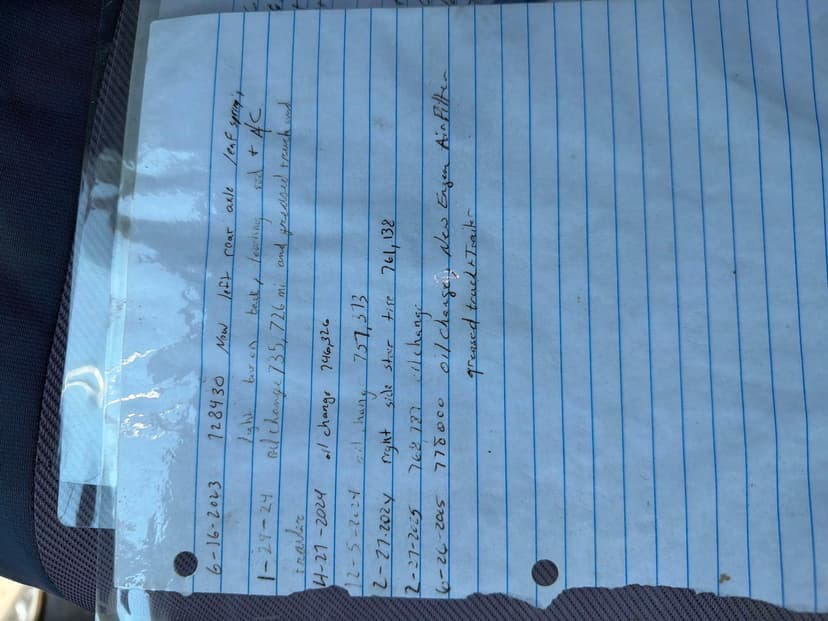 6-16-2023 728430 New left rear axle leaf springs
light bar on back, leveling rod + A/C
1-29-24 oil change 735,726 mi and greased truck and
trailer
4-27-2024 oil change 746,326
12-5-2024 oil change 757,313
2-27-2024 right side steer tire 761,138
2-27-2025 768,787 oil change
6-26-2025 778000 oil change, New Engen Air Filter
greased truck + Trailer